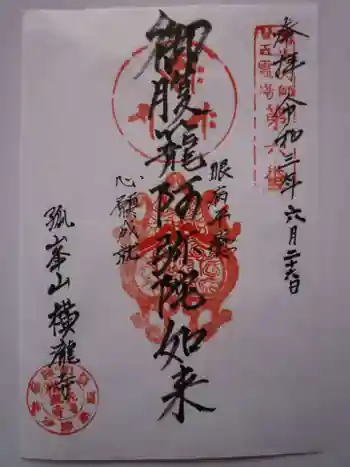 奉拝 令和三年六月二十六日
眼病平癒
御腹籠阿弥陀如来
心願成就
孤峯山 横瀧寺